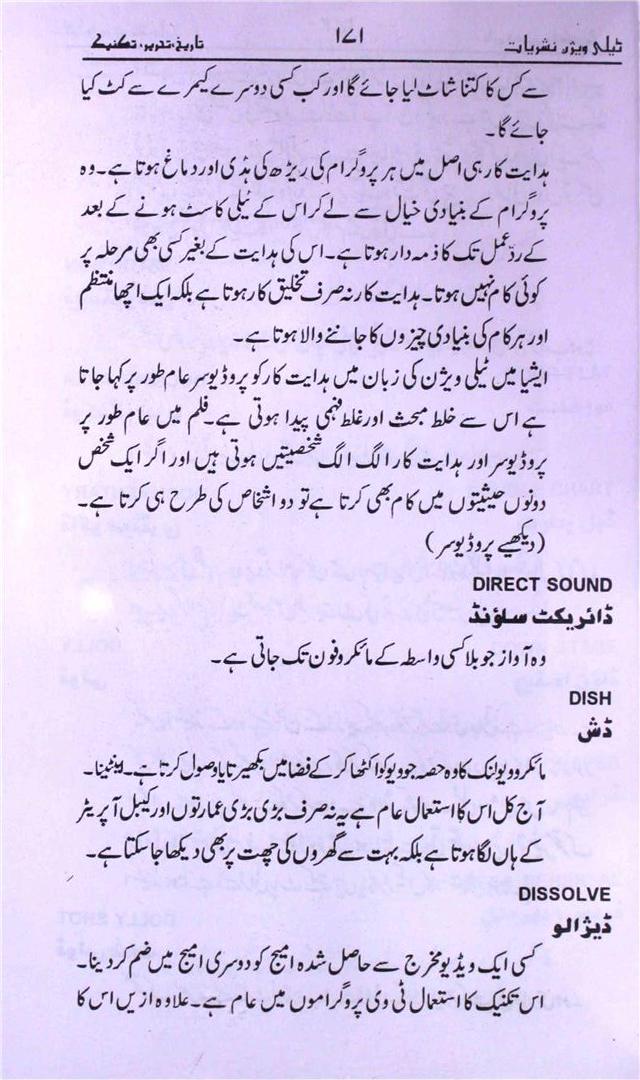 ٹیلی ویژن نشریات ۱۷۱ تاریخ، تحریر، تکنیک
سے کس کا کتنا شاٹ لیا جائے گا اور کب کسی دوسرے کیمرے سے کٹ کیا
جائے گا۔
ہدایت کار ہی اصل میں ہر پروگرام کی ریڑھ کی ہڈی اور دماغ ہوتا ہے۔ وہ
پروگرام کے بنیادی خیال سے لے کر اس کے ٹیلی کاسٹ ہونے کے بعد
کے ردّعمل تک کا ذمہ دار ہوتا ہے۔ اس کی ہدایت کے بغیر کسی بھی مرحلہ پر
کوئی کام نہیں ہوتا۔ ہدایت کار نہ صرف تخلیق کار ہوتا ہے بلکہ ایک اچھا منتظم
اور ہر کام کی بنیادی چیزوں کا جاننے والا ہوتا ہے۔
ایشیا میں ٹیلی ویژن کی زبان میں ہدایت کار کو پروڈیوسر عام طور پر کہا جاتا
ہے اس سے خلط مبحث اور غلط فہمی پیدا ہوتی ہے۔ فلم میں عام طور پر
پروڈیوسر اور ہدایت کار الگ الگ شخصیتیں ہوتی ہیں اور اگر ایک شخص
دونوں حیثیتوں میں کام بھی کرتا ہے تو دو اشخاص کی طرح ہی کرتا ہے۔
(دیکھیے پروڈیوسر)
DIRECT SOUND
ڈائریکٹ ساؤنڈ
وہ آواز جو بلا کسی واسطہ کے مائکروفون تک جاتی ہے۔
DISH
ڈش
مائکروویو لنک کا وہ حصہ جو ویو کو اکٹھا کر کے فضا میں بکھیرتا یا وصول کرتا ہے۔ اینٹینا۔
آج کل اس کا استعمال عام ہے یہ نہ صرف بڑی بڑی عمارتوں اور کیبل آپریٹر
کے ہاں لگا ہوتا ہے بلکہ بہت سے گھروں کی چھت پر بھی دیکھا جا سکتا ہے۔
DISSOLVE
ڈیزالو
کسی ایک ویڈیو مخرج سے حاصل شدہ امیج کو دوسری امیج میں ضم کر دینا۔
اس تکنیک کا استعمال ٹی وی پروگراموں میں عام ہے۔ علاوہ ازیں اس کا